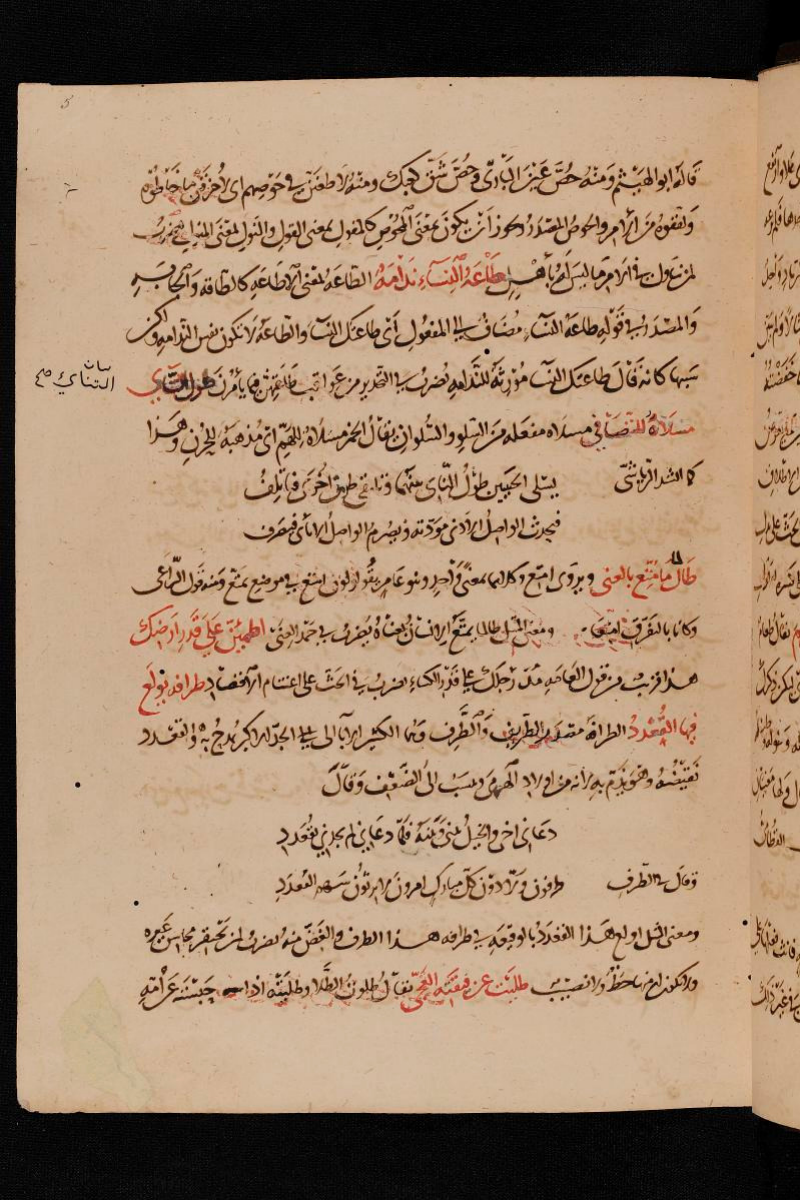 قاله ابو الهيثم ومنه حُصْ عَينَ البَازِيّ وحُصْ شَقّ كعبك ومنه لاطعنن في حَوْصِهم اى لأخرقنّ ما خاطوه
ولفقوه من الأمر والحوص المصدر ويجوز ان يكون بمعنى المحوص كالمقول بمعنى القول والنول لمعنى المنال يضرب
لمن تناول في الامر ما ليس له باهل طَاعَةُ النِّسَاءِ نَدَامَةٌ الطاعة بمعنى الاطاعة كالطاقة والجابة
والمصدر في قوله طاعة النساء مضاف الى المفعول أى طاعتك النساء والطاعة لا تكون نفس الندامة ولكن
سببها كانه قال طاعتك النساء مورثة للندامة يضرب في التحذير من عواقب طاعتهن فيما يأمرن طول التنائي
بيان التنائي
مسلاة للتصافي مسلاة مفعلة من السلو والسلوان يقال الخمر مسلاة للهم اى مذهبة للحزن وهذا
كما انشد الرياشي يسلى الحبيبين طول النأى بينهما وتلتقي طرق اخرى فتأتلف
فيحدث الواصل الادنى مودته ويصرم الواصل الانأى فينصرف
طال ما متع بالغنى ويروى امتع وكلاهما بمعنى واحد وبنو عامر يقولون امتع في موضع تمتع ومنه قول الراعي
وكانا بالتفرق امتعا ومعنى المثل طالما يمتع الانسان بغناه يضرب في حمد الغنى اطمئن على قدر ارضك
هذا قريب من قول العامة مد رجلك على قدر الكساء يضرب في الحث على اغتنام الاقتصاد طرافة يولع
فيها القُعْدد الطرافة مصدر الطريف والطرف وهما الكثير الآباء الى الجد الاكبر يمدح به والقعدد
نقيضه وهو يذم به لانه من اولاد الهرمى وينسب الى الضعف وقال
دعانى اخى والخيل بينى وبينه فلما دعانى لم يجدنى بقعدد
وقال في الطرف طرفون ولادون كل مبارك امرون لا يرثون سهم القعدد
ومعنى المثل اولع هذا القعدد بالوقيعة في طرافة هذا الطرف والغض منه يضرب لمن يحتقر محاسن غيره
ولا يكون له منها حظ ولا نصيب طلبت عن فيقته العجي يقال طلوت الطلا وطليته اذا حبسته عن امه